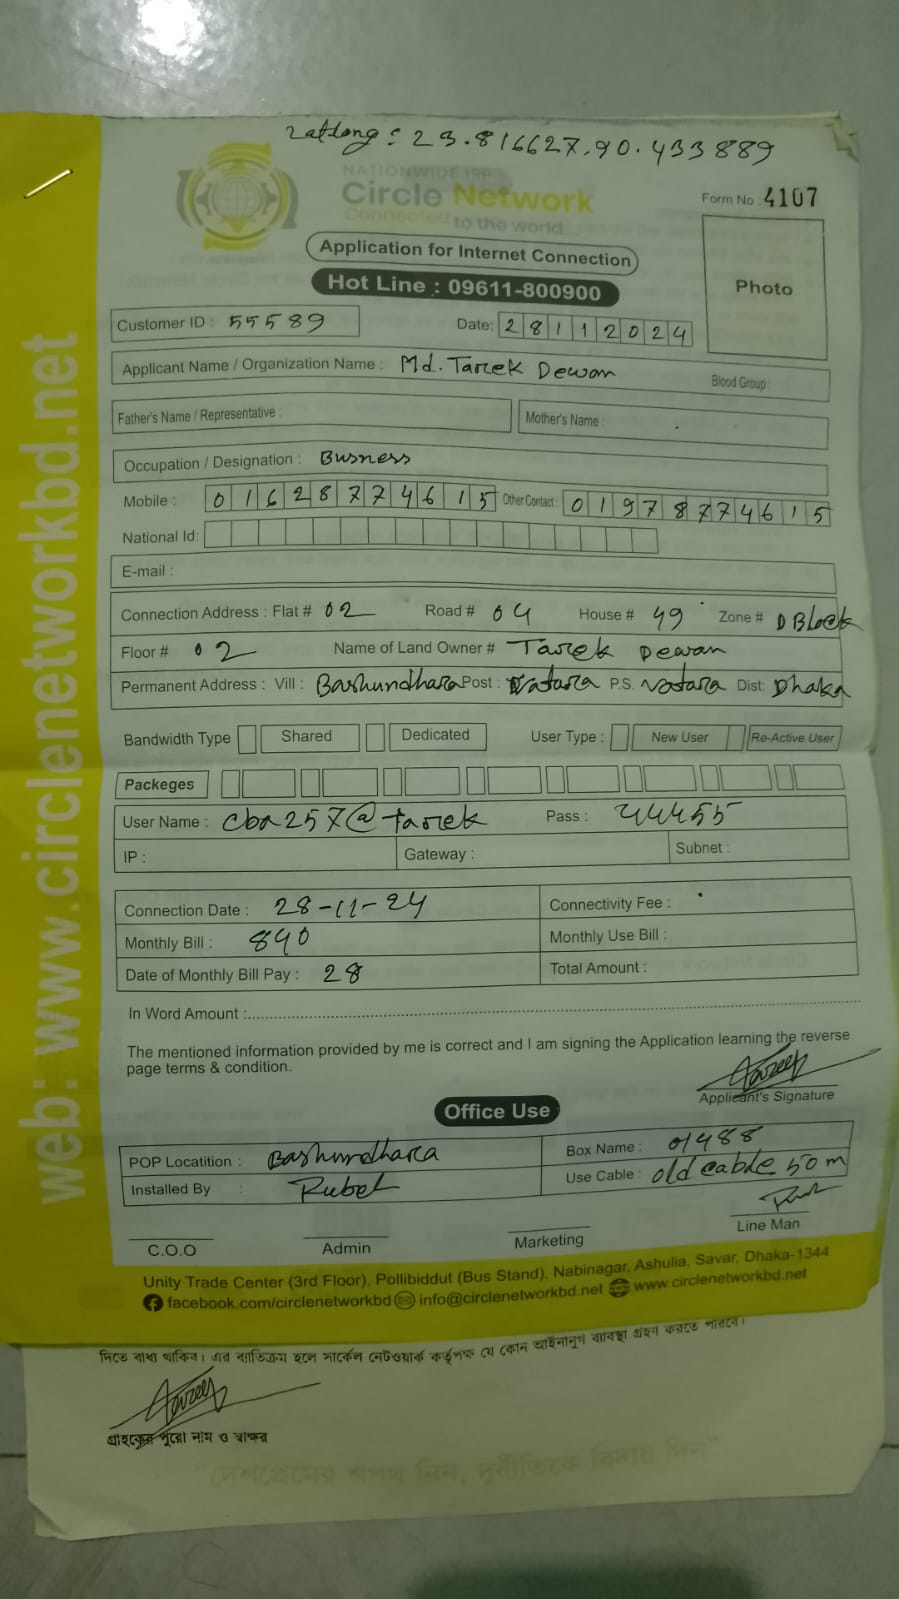 Latlong: 23.816627,90.433889
NATIONWIDE ISP
Circle Network
Connected to the world
Form No : 4107
Application for Internet Connection
Hot Line : 09611-800900
Photo
Customer ID : 55589
Date: 28112024
Applicant Name / Organization Name : Md. Tarek Dewan
Blood Group :
Father's Name / Representative :
Mother's Name :
Occupation / Designation : Busness
Mobile : 01628774615 Other Contact : 01978774615
National Id:
E-mail :
Connection Address : Flat # 02 Road # 04 House # 49 Zone # D Block
Floor # 02 Name of Land Owner # Tarek Dewan
Permanent Address : Vill : Bashundhara Post : Vatara P.S. Vatara Dist: Dhaka
Bandwidth Type Shared Dedicated User Type : New User Re-Active User
Packeges
User Name : cba257@tarek Pass : 44455
IP : Gateway : Subnet :
Connection Date : 28-11-24 Connectivity Fee :
Monthly Bill : 840 Monthly Use Bill :
Date of Monthly Bill Pay : 28 Total Amount :
In Word Amount :
The mentioned information provided by me is correct and I am signing the Application learning the reverse
page terms & condition.
Applicant's Signature
Office Use
POP Locatition : Bashundhara Box Name : 01488
Installed By : Rubel Use Cable : old cable 50 m
C.O.O Admin Marketing Line Man
Unity Trade Center (3rd Floor), Pollibiddut (Bus Stand), Nabinagar, Ashulia, Savar, Dhaka-1344
facebook.com/circlenetworkbd info@circlenetworkbd.net www.circlenetworkbd.net
web: www.circlenetworkbd.net
দিতে বাধ্য থাকিব। এর ব্যতিক্রম হলে সার্কেল নেটওয়ার্ক কর্তৃপক্ষ যে কোন আইনানুগ ব্যাবস্থা গ্রহন করতে পারবে।
গ্রাহকের পুরো নাম ও স্বাক্ষর
"দেশপ্রেমের শপথ নিন, দুর্নীতিকে বিদায় দিন"